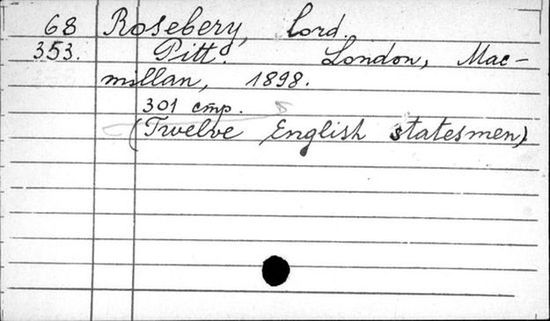 68 Rosebery, lord.
353. Pitt. London, Mac-
millan, 1898.
301 стр. 8
(Twelve English statesmen)